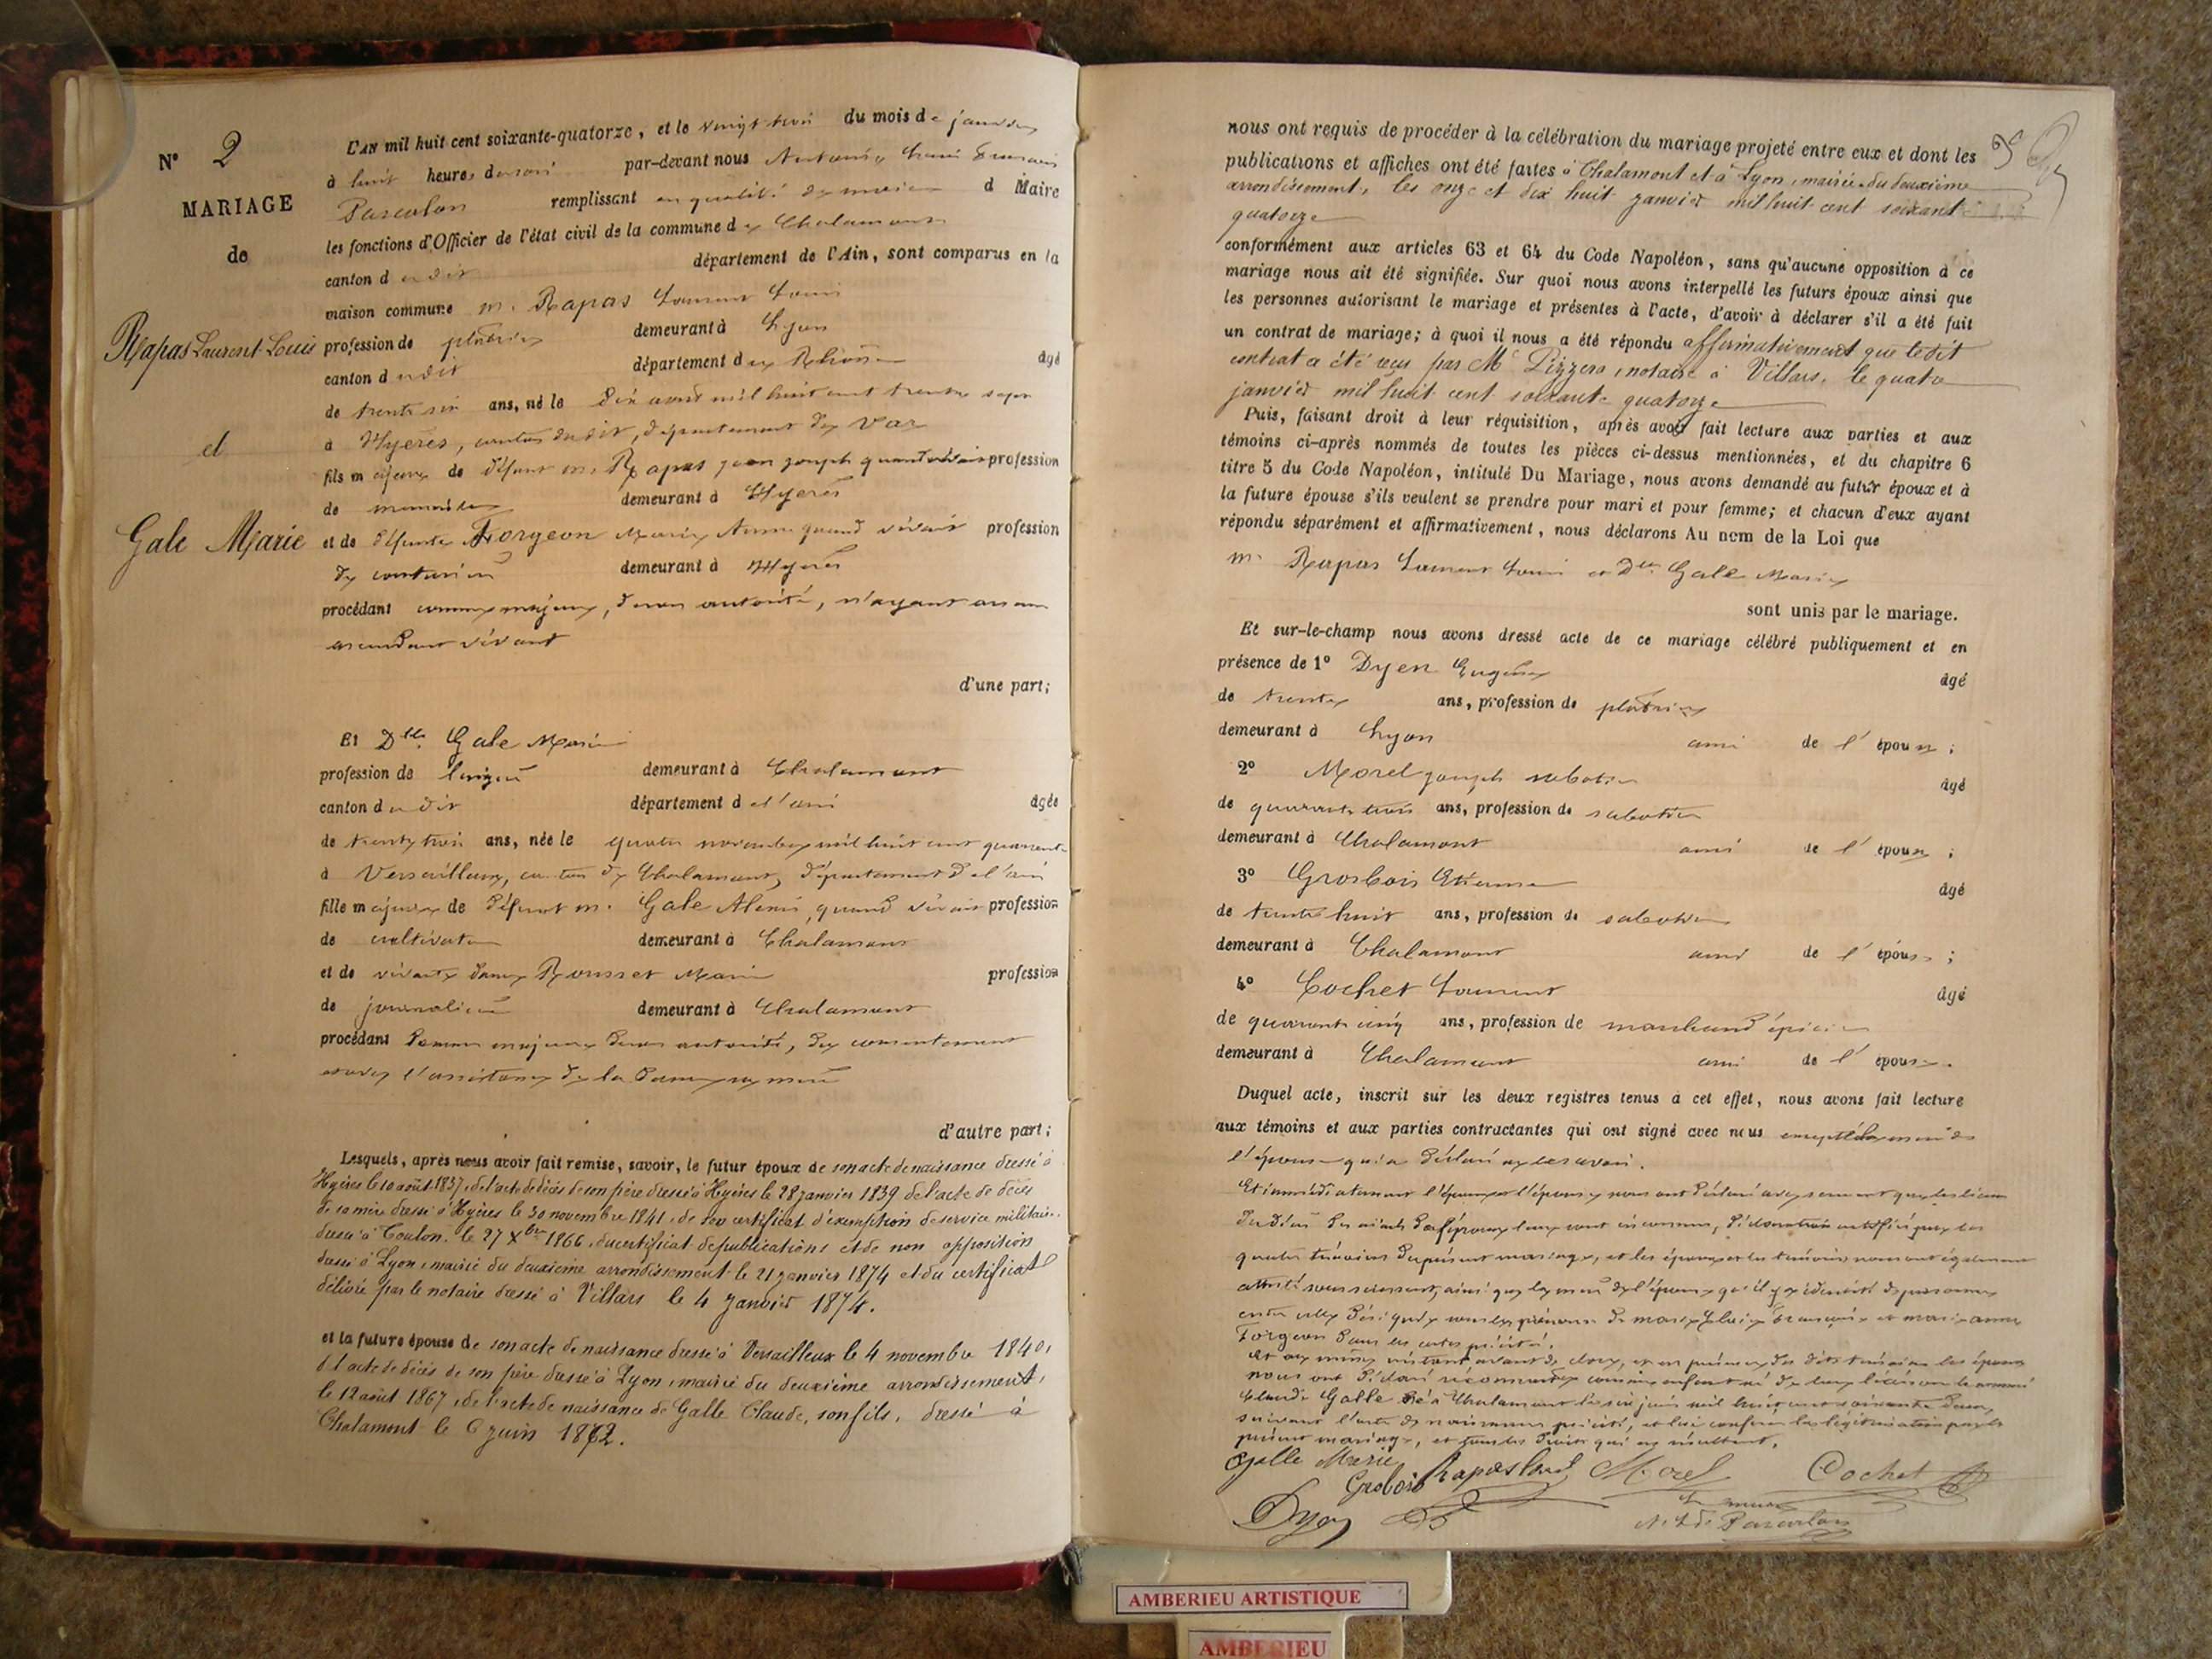 N° 2
MARIAGE
de
Rapas Laurent Louis
et
Gale Marie
L'AN mil huit cent soixante-quatorze, et le vingt trois du mois de janvier
à huit heures du soir par-devant nous
Pascalon remplissant en qualité de maire d Maire
les fonctions d'Officier de l'état civil de la commune de Chalamont
canton dudit département de l'Ain, sont comparus en la
maison commune m. Rapas Laurent Louis
profession de plâtrier demeurant à Lyon
canton dudit département du Rhône âgé
de trente six ans, né le dix août mil huit cent trente sept
à Hyères, canton dudit, département du Var
fils majeur de défunt m. Rapas jean joseph quand vivait profession
de demeurant à Hyères
et de défunte Forgeon Marie Anne quand vivait profession
de couturière demeurant à Hyères
procédant comme majeur, de son autorité, n'ayant aucun
ascendant vivant
d'une part;
Et Dlle Gale Marie
profession de lingère demeurant à Chalamont
canton dudit département de l'ain âgée
de trente trois ans, née le quatre novembre mil huit cent quarante
à Versailleux, canton de Chalamont, département de l'ain
fille majeure de défunt m. Gale Alexis, quand vivait profession
de cultivateur demeurant à Chalamont
et de vivante dame Rousset Marie profession
de journalière demeurant à Chalamont
procédant comme majeure de son autorité, du consentement
et avec l'assistance de la dame sa mère
d'autre part;
Lesquels, après nous avoir fait remise, savoir, le futur époux de son acte de naissance dressé à
Hyères le 10 août 1837, de l'acte de décès de son père dressé à Hyères le 28 janvier 1839 de l'acte de décès
de sa mère dressé à Hyères le 30 novembre 1841, de son certificat d'exemption de service militaire
dressé à Toulon le 27 Xbre 1866, du certificat de publications et de non opposition
dressé à Lyon, mairie du deuxième arrondissement le 21 janvier 1874 et du certificat
délivré par le notaire dressé à Villars le 4 janvier 1874.
et la future épouse de son acte de naissance dressé à Versailleux le 4 novembre 1840,
de l'acte de décès de son père dressé à Lyon, mairie du deuxième arrondissement,
le 12 août 1867, de l'acte de naissance de Galle Claude, son fils, dressé à
Chalamont le 6 juin 1872.
nous ont requis de procéder à la célébration du mariage projeté entre eux et dont les
publications et affiches ont été faites à Chalamont et à Lyon, mairie du deuxième
arrondissement, les onze et dix huit janvier mil huit cent soixante
quatorze
conformément aux articles 63 et 64 du Code Napoléon, sans qu'aucune opposition à ce
mariage nous ait été signifiée. Sur quoi nous avons interpellé les futurs époux ainsi que
les personnes autorisant le mariage et présentes à l'acte, d'avoir à déclarer s'il a été fait
un contrat de mariage; à quoi il nous a été répondu affirmativement que ledit
contrat a été reçu par Me Pizzera, notaire à Villars, le quatre
janvier mil huit cent soixante quatorze
Puis, faisant droit à leur réquisition, après avoir fait lecture aux parties et aux
témoins ci-après nommés de toutes les pièces ci-dessus mentionnées, et du chapitre 6
titre 5 du Code Napoléon, intitulé Du Mariage, nous avons demandé au futur époux et à
la future épouse s'ils veulent se prendre pour mari et pour femme; et chacun d'eux ayant
répondu séparément et affirmativement, nous déclarons Au nom de la Loi que
m. Rapas Laurent Louis et Dlle Gale Marie
sont unis par le mariage.
Et sur-le-champ nous avons dressé acte de ce mariage célébré publiquement et en
présence de 1° Dyen Eugène âgé
de trente ans, profession de plâtrier
demeurant à Lyon ami de l'époux;
2° Morel joseph sabotier âgé
de quarante trois ans, profession de sabotier
demeurant à Chalamont ami de l'époux;
3° Grosbois Etienne âgé
de trente huit ans, profession de sabotier
demeurant à Chalamont ami de l'épouse;
4° Cochet Laurent âgé
de quarante cinq ans, profession de marchand épicier
demeurant à Chalamont ami de l'épouse.
Duquel acte, inscrit sur les deux registres tenus à cet effet, nous avons fait lecture
aux témoins et aux parties contractantes qui ont signé avec nous excepté la mère de
l'épouse qui a déclaré ne le savoir.
Et immédiatement l'époux et l'épouse nous ont déclaré avec serment que les lieux
du décès des aïeuls de l'époux leur sont inconnus, déclaration certifiée par les
quatre témoins du présent mariage, et les époux et les témoins nous ont également
attesté sous serment, ainsi que la mère de l'épouse qu'il y a identité de personne
entre celle désignée sous les prénoms de marie et marie anne
Forgeon dans les actes précités.
Et au même instant, avant de clore, et en présence des dits témoins les époux
nous ont déclaré reconnaître comme enfant né de leur liaison le nommé
Claude Galle né à Chalamont le six juin mil huit cent soixante douze
suivant l'acte de naissance précité, et lui confère la légitimation par le
présent mariage, et tous les droits qui en résultent.
Galle Marie Rapas Morel Cochet
Grosbois
Dyen Le maire
Pascalon
AMBERIEU ARTISTIQUE
AMBERIEU